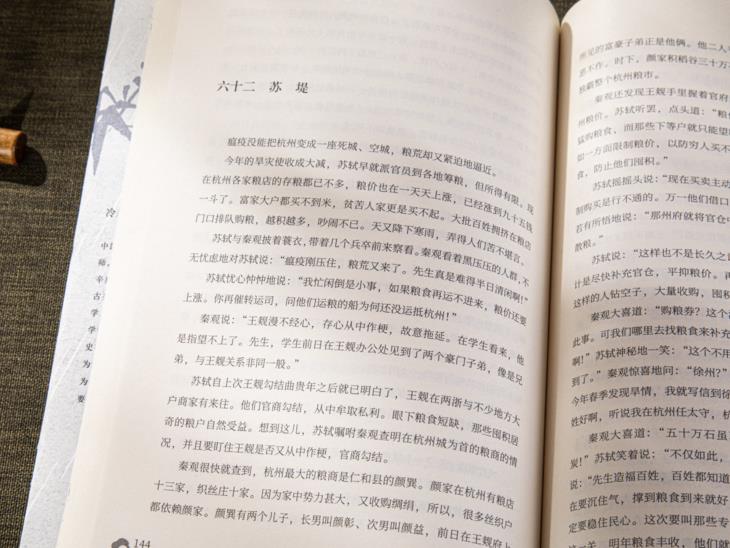 六十二 苏 堤
瘟疫没能把杭州变成一座死城、空城，粮荒却又紧迫地逼近。
今年的旱灾使收成大减，苏轼早就派官员到各地筹粮，但所得有限。现
在杭州各家粮店的存粮都已不多，粮价也在一天天上涨，已经涨到九十五钱
一斗了。富家大户都买不到米，贫苦人家更是买不起。大批百姓拥挤在粮店
门口排队购粮，越积越多，吵闹不已。天又降下寒雨，弄得人们苦不堪言。
苏轼与秦观披着蓑衣，带着几个兵卒前来察看。秦观看着黑压压的人群，不
无忧虑地对苏轼说：“瘟疫刚压住，粮荒又来了。先生真是难得半日清闲啊！”
苏轼忧心忡忡地说：“我忙闲倒是小事，如果粮食再运不进来，粮价还要
上涨。你再催转运司，问他们运粮的船为何还没运抵杭州！”
秦观说：“王觌漫不经心，存心从中作梗，故意拖延。在学生看来，他
是指望不上了。先生，学生前日在王觌办公处见到了两个豪门子弟，像是兄
弟，与王觌关系非同一般。”
苏轼自上次王觌勾结曲贵年之后就已明白了，王觌在两浙与不少地方大
户商家有来往。他们官商勾结，从中牟取私利。眼下粮食短缺，那些囤积居
奇的粮户自然受益。想到这儿，苏轼嘱咐秦观查明在杭州城为首的粮商的情
况，并且要盯住王觌是否又从中作梗，官商勾结。
秦观很快就查到，杭州最大的粮商是仁和县的颜巽。颜家在杭州有粮店
十三家，织丝庄十家。因为家中势力甚大，又收购绸绢，所以，很多丝织户
都依赖颜家。颜巽有两个儿子，长男叫颜彰、次男叫颜益，前日在王觌府上
144
所见的富豪子弟正是他俩。他二人
恶不作。时下，颜家积稻谷三十万
独霸整个杭州粮市。
秦观还发现王觌手里握着官府
州粮价。苏轼听罢，点头道：“粮
猛购粮食，而那些下等户就只能望
如一方面限制粮价，以防穷人买不
食，防止他们囤积。”
苏轼摇摇头说：“现在买卖主动
制购买是行不通的。万一他们借口
若有所悟地说：“那州府就将官仓中
散粮。”
苏轼说：“这样也不是长久之
计是尽快补充官仓，平抑粮价。再
这样的人钻空子，大量收购，囤积
秦观大喜道：“购粮券？这个
此事。可我们哪里去找粮食来补充
啊！”苏轼神秘地一笑：“这个不用
到了。”秦观惊喜地问：“徐州？”
今年春季发现旱情，我就写信到徐
姓好啊，听说我在杭州任太守，杭
秦观大喜道：“五十万石虽
炭！”苏轼笑着说：“不仅如此，
说：“先生造福百姓，百姓都知道
在要沉住气，撑到粮食到来就好
定要稳住民心。这次要叫那些专
一关，明年粮食丰收，他们就
冷
中
师，
辛
古
学
学
史
为
为
要